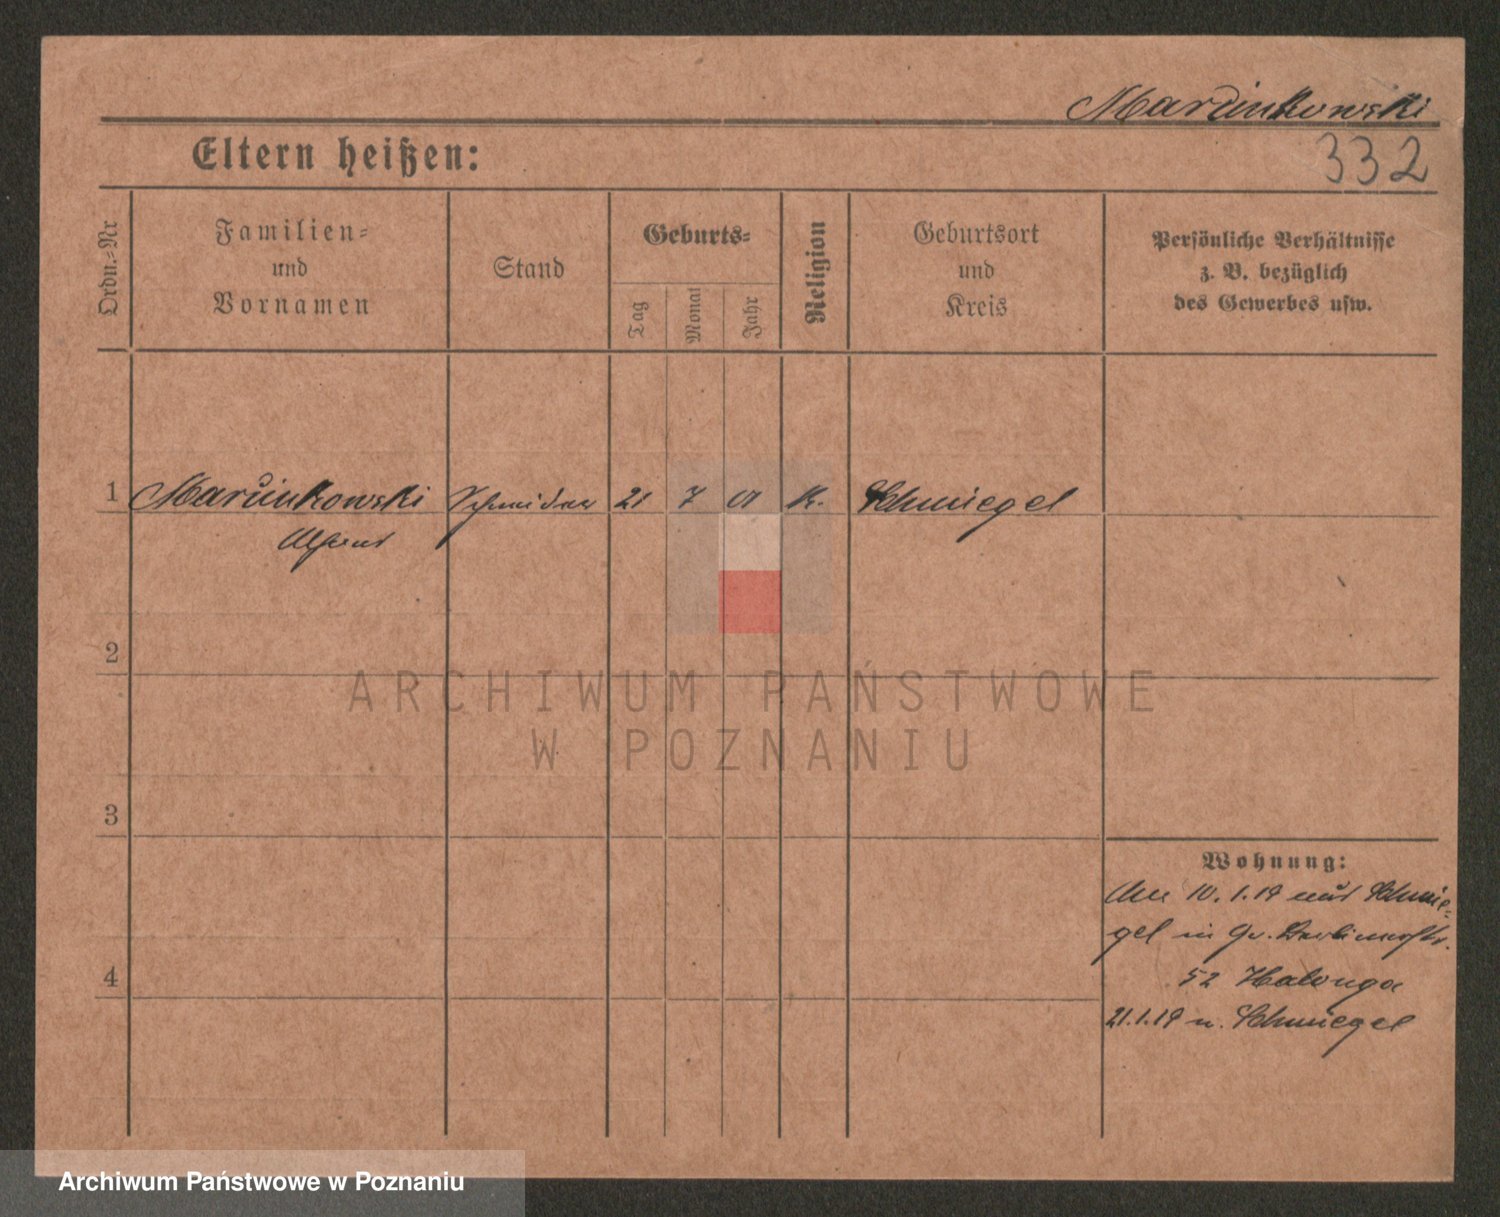 Marcinkowski
Eltern heißen:
332
Ordn.-Nr
Familien-
und
Vornamen
Stand
Geburts-
Tag
Monat
Jahr
Religion
Geburtsort
und
Kreis
Persönliche Verhältnisse
z. B. bezüglich
des Gewerbes usw.
1 Marcinkowski Schneider 21 7 01 K. Schmiegel
2
ARCHIWUM PAŃSTWOWE
W POZNANIU
3
Wohnung:
10.1.19 aus Schmie-
gel in Gr. Berlinerstr.
4
52
21.1.19 n. Schmiegel
Archiwum Państwowe w Poznaniu